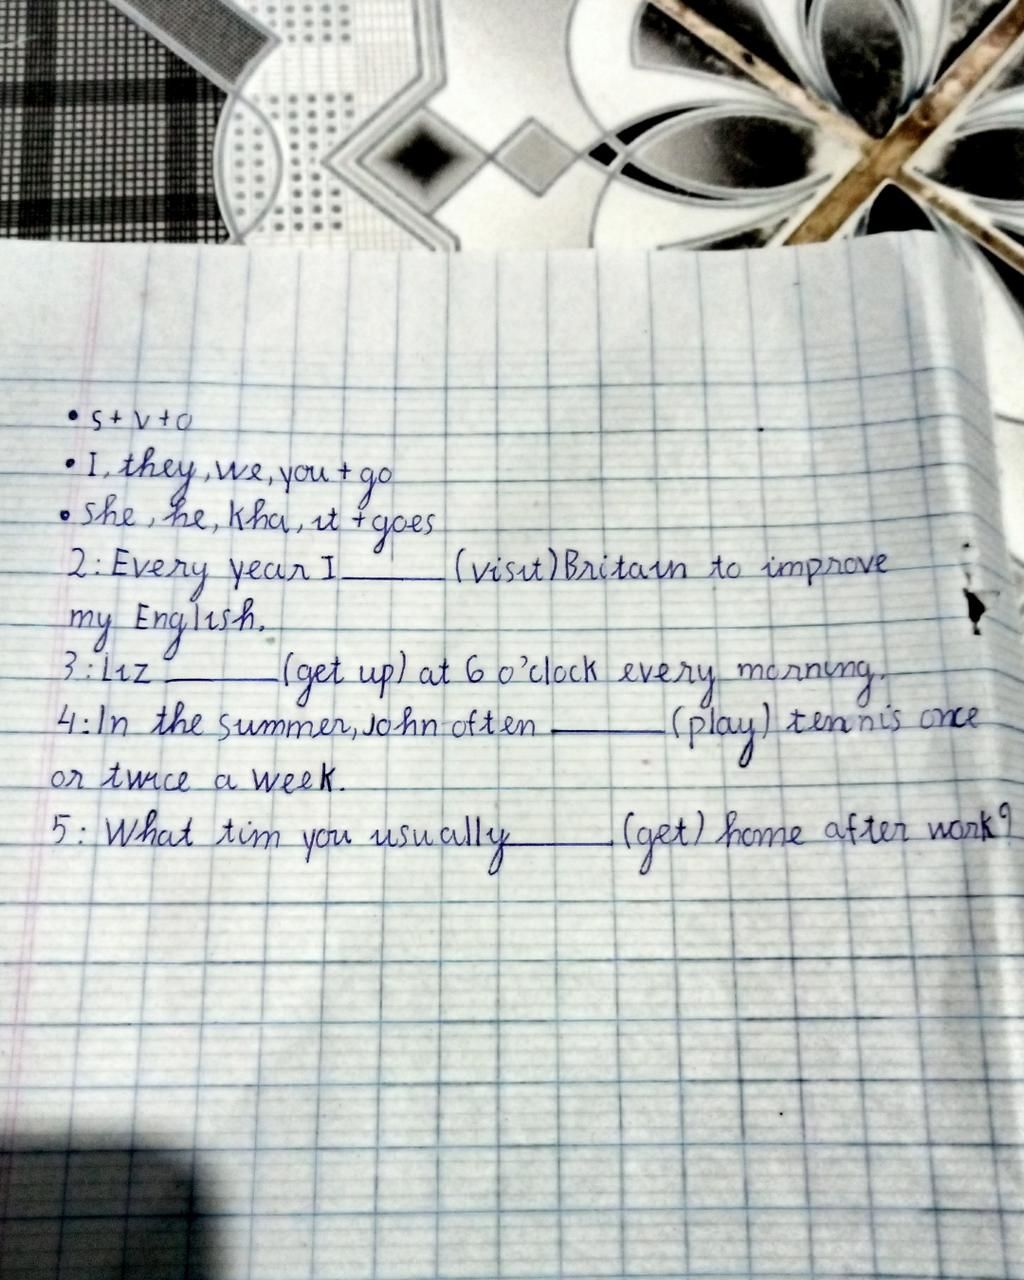 • S + V + O
• I, they, we, you + go
• she, he, Kha, it + goes
2: Every year I______(visit) Britain to improve
my English.
3: Liz ______(get up) at 6 o'clock every morning.
4: In the summer, John often ______(play) tennis once
or twice a week.
5: What tim you usually______(get) home after work?